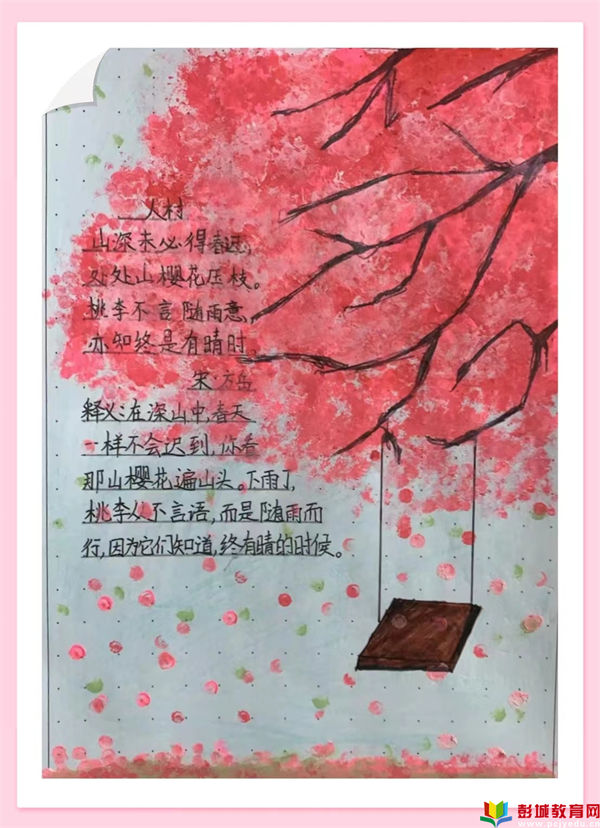 入村
山深未必得春迟，
处处山樱花压枝。
桃李不言随雨意，
亦知终是有晴时。
宋·方岳
释义：在深山中，春天
一样不会迟到，你看
那山樱花遍山头。下雨了，
桃李从不言语，而是随雨而
行，因为它们知道，终有晴的时候。
彭城教育网
www.pcjyedu.cn